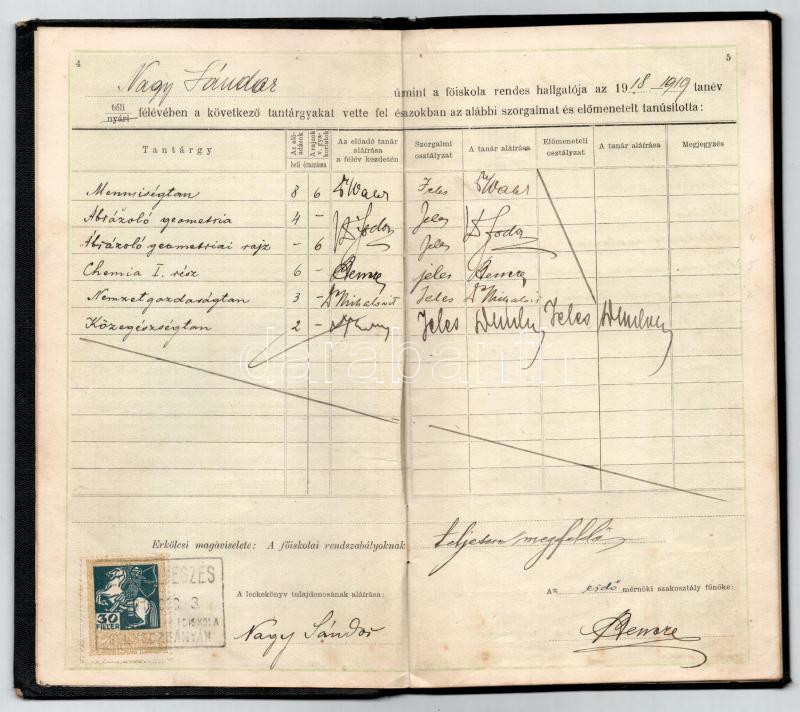 4
5
Nagy Sándor úmint a főiskola rendes hallgatója az 1918-1919 tanév
téli
nyári félévében a következő tantárgyakat vette fel és azokban az alábbi szorgalmat és előmenetelt tanúsította:
Tantárgy Az elő-adások A rajzok v. gya-korlatok heti óraszáma Az előadó tanár aláírása a félév kezdetén Szorgalmi osztályzat A tanár aláírása Előmeneteli osztályzat A tanár aláírása Megjegyzés
Mennyiségtan 8 6 Jeles
Ábrázoló geometria 4 - Dr Fodor Jeles Dr Fodor
Ábrázoló geometriai rajz - 6 Jeles
Chemia I. rész 6 - jeles
Nemzetgazdaságtan 3 - Jeles
Közegészségtan 2 - Jeles Jeles
darabanth
Erkölcsi magaviselete: A főiskolai rendszabályoknak teljesen megfelelő
A leckekönyv tulajdonosának aláírása:
Az erdőmérnöki szakosztály főnöke:
Nagy Sándor
30
FILLÉR